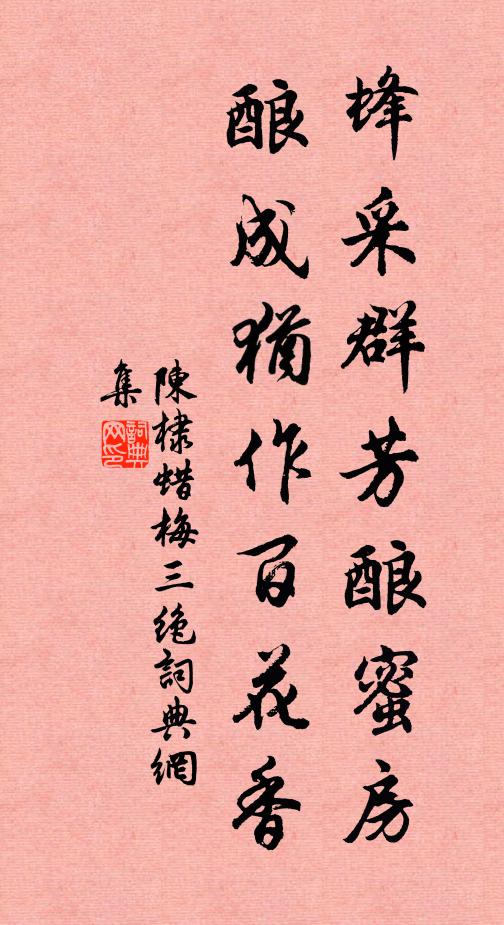 蜂采群芳酿蜜房
酿成猶作百花香
陳棣蜡梅三绝詞典網
集
詞典网印